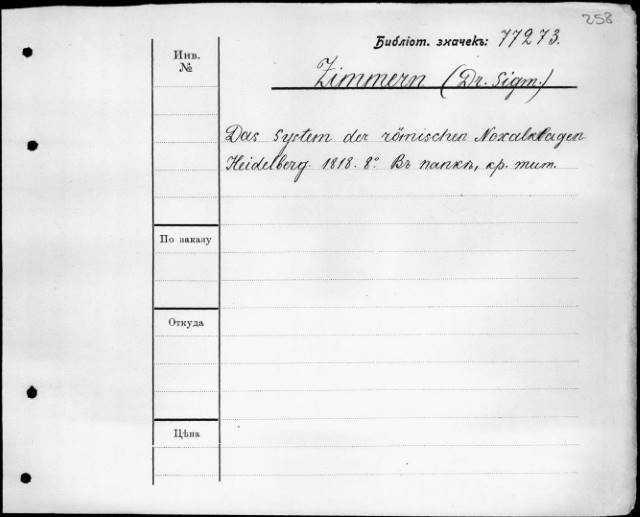 258
Библіот. значекъ: 77273.
Инв.
№
Zimmern (Dr. Sigm.)
Das System der römischen Noxalklagen
Heidelberg. 1818. 8° Въ папкѣ, кр. тит.
По заказу
Откуда
Цѣна